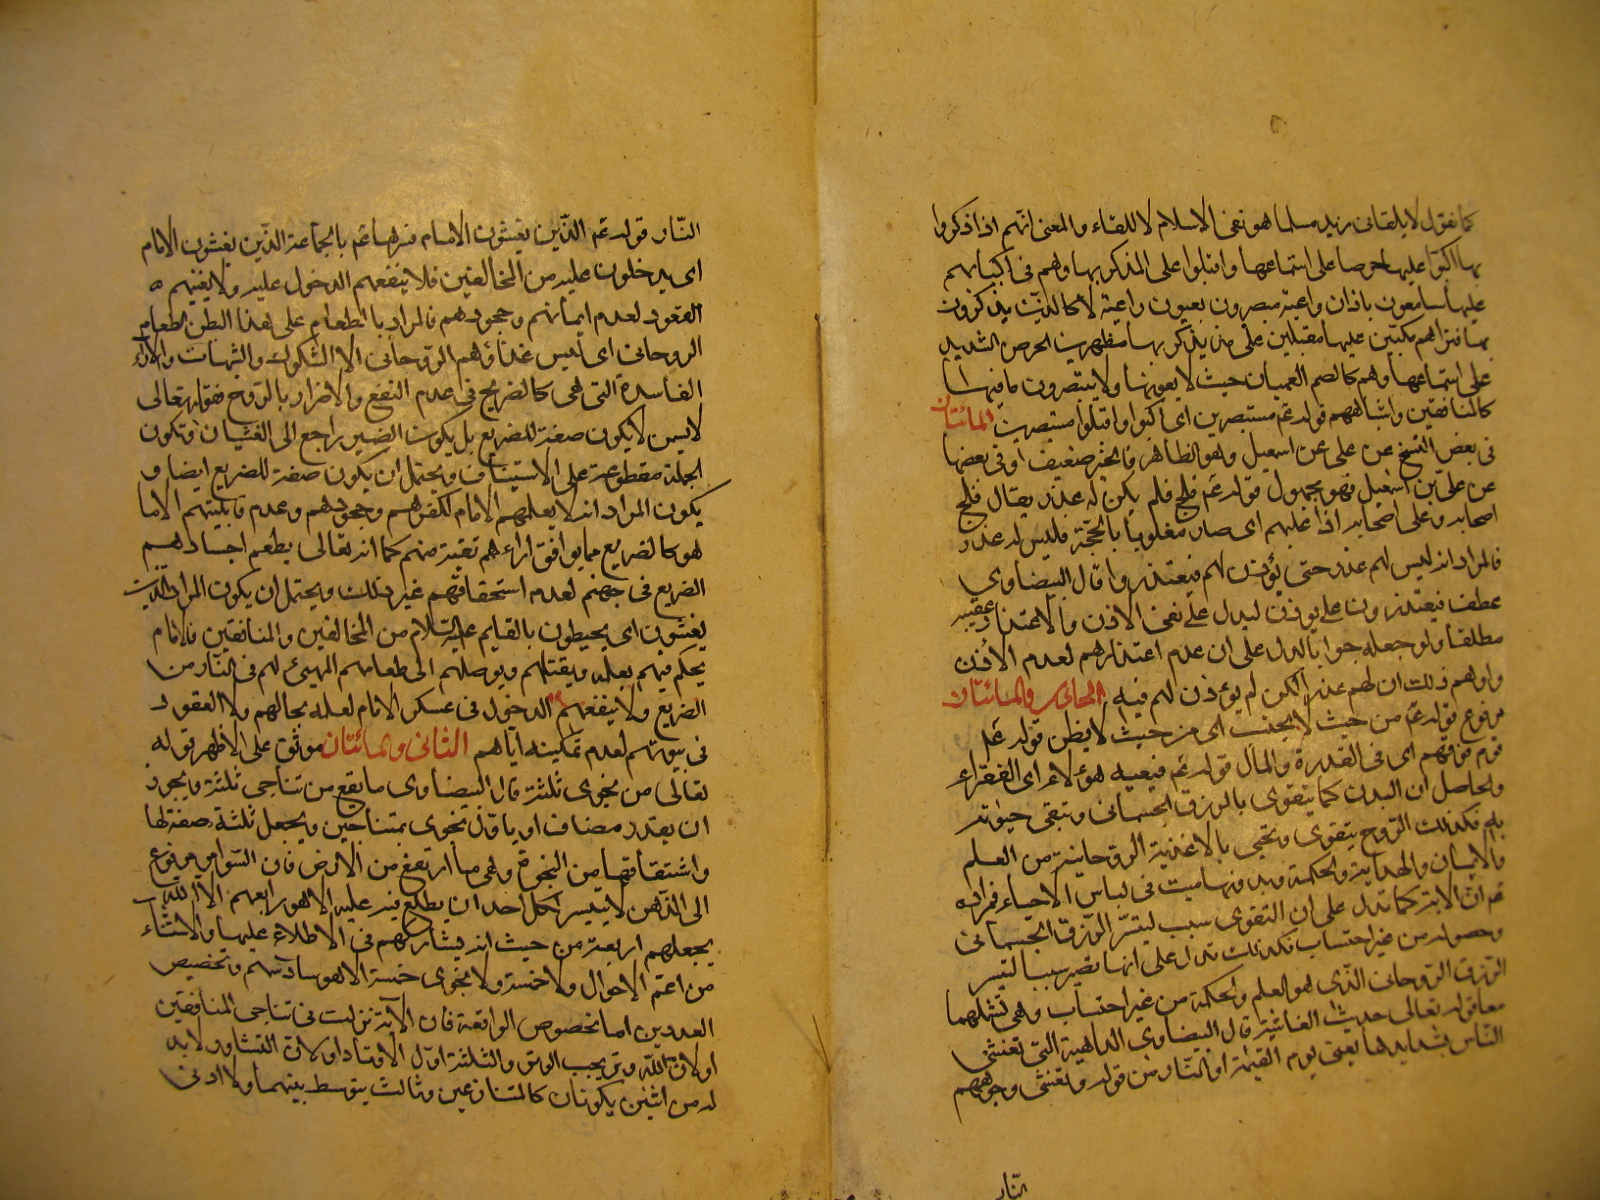 كما نقول لا يلقانى زيد مسلما هو نفى الاسلام لا للقاء والمعنى انهم اذا ذكروا
بها اكبوا عليها حرصا على استماعها واقبلوا على المذكر بها وهم فى اكبابهم
عليها سامعون باذان واعية مبصرون بعيون راعية لا كالذين يذكرون
بها فتراهم مكبين عليها مقبلين على من يذكر بها مظهرين الحرص الشديد
على استماعها وهم كالصم العميان حيث لا يعونها ولا يتبصرون ما فيها
كالمنافقين واشباههم قوله عم مستبصرين اى اكبوا واقبلوا مستبصرين المائتان
فى بعض النسخ عن على عن اسمعيل وهو الظاهر فالخبر ضعيف او فى بعضها
عن على بن اسمعيل فهو مجهول قوله عم فلج فلم يكن له عذر يقال فلج
اصحابه وعلى اصحابه اذا غلبهم اى صار مغلوبا بالحجة فليس له عذر
فالمراد انه ليس لهم عذر حتى يؤذن لهم فيعتذروا قال البيضاوى
عطف فيعتذرون على يوذن ليدل على نفى الاذن والاعتذار عقيبه
مطلقا ولو جعله جوابا لدل على ان عدم اعتذارهم لعدم الاذن
واوهم ذلك ان لهم عذرا لكن لم يوذن لهم فيه الحادى والمائتان
مرفوع قوله عم من حيث لا يحتسب اى من حيث لا يظن قوله عم
قوم فوقهم اى فى القدرة والمال قوله عم فيعيه هؤلاء اى الفقراء
والحاصل ان البدن كما يتقوى بالرزق الجسمانى وتبقى حيوته
به فكذلك الروح يتقوى وتحيى بالاغذية الروحانية من العلم
والايمان والهداية والحكمة وبدونها ميت فى لباس الاحياء فمراده
عم ان الاية كما تدل على ان التقوى سبب لتيسر الرزق الجسمانى
وحصوله من غير احتساب فكذلك تدل على انها تصير سببا لتيسر
الرزق الروحانى الذى هو العلم والحكمة من غير احتساب وهى تشملهما
معا قوله تعالى حديث الغاشية قال البيضاوى الداهية التى تغشى
الناس بشدايدها يعنى يوم القيمة او النار من قوله وتغشى وجوههم
النار
النار قوله عم الذين يغشون الامام فسرها عم بالجماعة الذين يغشون الامام
اى يدخلون عليه من المخالفين فلا ينفعهم الدخول عليه ولا يغنيهم
القعود لعدم ايمانهم وجحودهم فالمراد بالطعام على هذا البطن الطعام
الروحانى اى ليس غذاؤهم الروحانى الا الشكوك والشبهات والآراء
الفاسدة التى هى كالضريع فى عدم النفع والاضرار بالروح فقوله تعالى
لا يسمن لا يكون صفة للضريع بل يكون الضمير راجع الى الغشيان وتكون
الجملة مقطوعة على الاستيناف ويحتمل ان يكون صفة للضريع ايضا و
يكون المراد انه لا يعلمهم الامام لكفرهم وجحودهم وعدم قابليتهم الا ما
هو كالضريع مما يوافق اراءهم تقية منهم كما انه تعالى يطعم اجسادهم
الضريع فى جهنم لعدم استحقاقهم غير ذلك ويحتمل ان يكون المراد بالذين
يغشون اى يحيطون بالقايم عليه السلام من المخالفين والمنافقين فالامام
يحكم فيهم بعلمه ويقتلهم ويوصلهم الى طعامهم المهيئ لهم فى النار من
الضريع ولا ينفعهم الدخول فى عسكر الامام لعلمه بحالهم ولا القعود
فى بيوتهم لعدم تمكينه اياهم الثانى والمائتان موثق على الاظهر قوله
تعالى من نجوى ثلثة قال البيضاوى ما يقع من تناجى ثلثة ويجوز
ان يقدر مضاف او ياول نجوى بمتناجين ويجعل ثلثة صفة لها
واشتقاقها من النجوة وهى ما ارتفع من الارض فان السر امر مرفوع
الى الذهن لا يتيسر لكل احد ان يطلع عليه الا هو رابعهم الا الله
يجعلهم اربعة من حيث انه يشاركهم فى الاطلاع عليها والاستثناء
من اعم الاحوال ولا خمسة ولا نجوى خمسة الا هو سادسهم وتخصيص
العددين اما لخصوص الواقعة فان الآية نزلت فى تناجى المنافقين
او لان الله وتر يحب الوتر والثلثة اول الاوتار او لان التشاور لا بد
له من اثنين يكونان كالمتنازعين وثالث يتوسط بينهما ولا ادنى